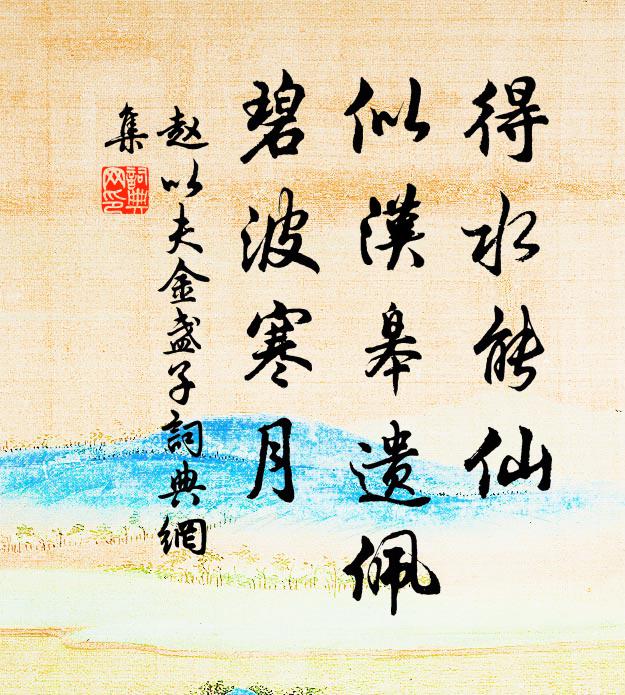 得水能仙
似漢皋遺佩
碧波寒月
赵以夫金盏子詞典網
集
詞典
网印